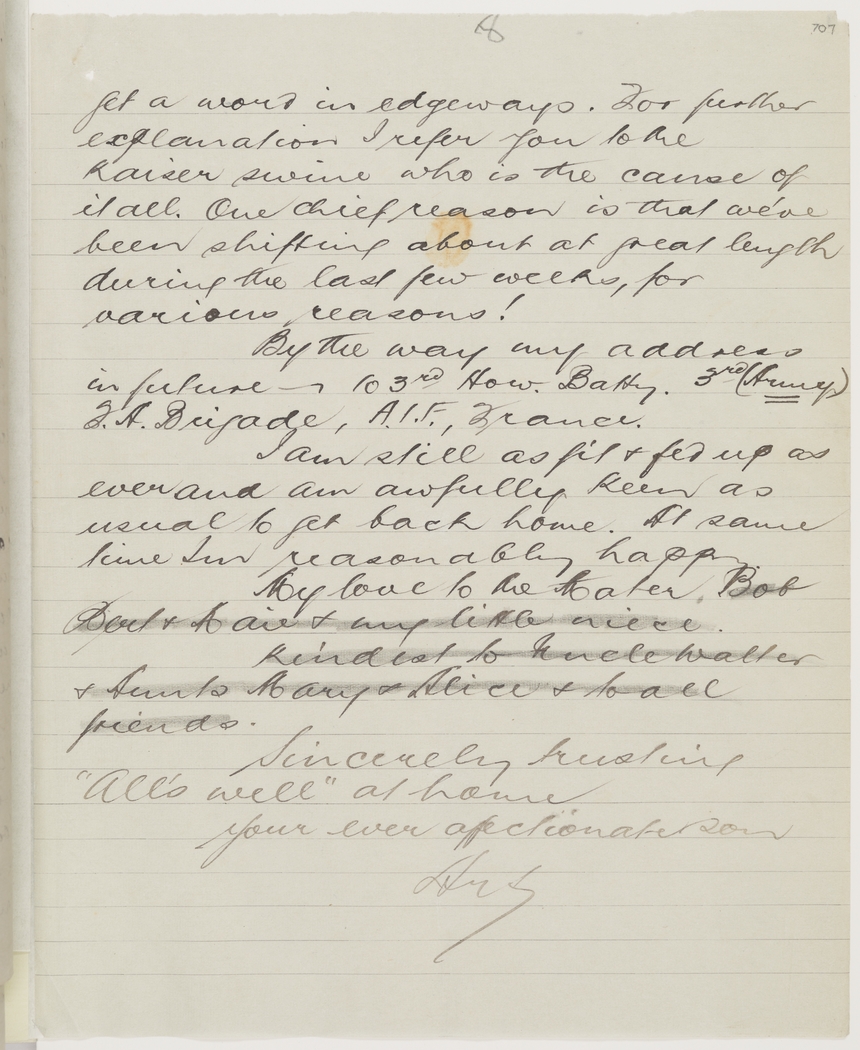 8
707
get a word in edgeways. For further
explanation I refer you to the
Kaiser swine who is the cause of
it all. One chief reason is that we've
been shifting about at great length
during the last few weeks, for
various reasons!
By the way my address
in future — 103rd How. Batty. 3rd (Army)
F.A. Brigade, A.I.F., France.
I am still as fit & fed up as
ever and am awfully keen as
usual to get back home. At same
time I'm reasonably happy
My love to the Mater, Bob
Bert & & my little niece.
Kindest to Uncle Walter
& Aunts Mary & Alice & to all
friends.
Sincerely trusting
"All's well" at home
your ever affectionate son